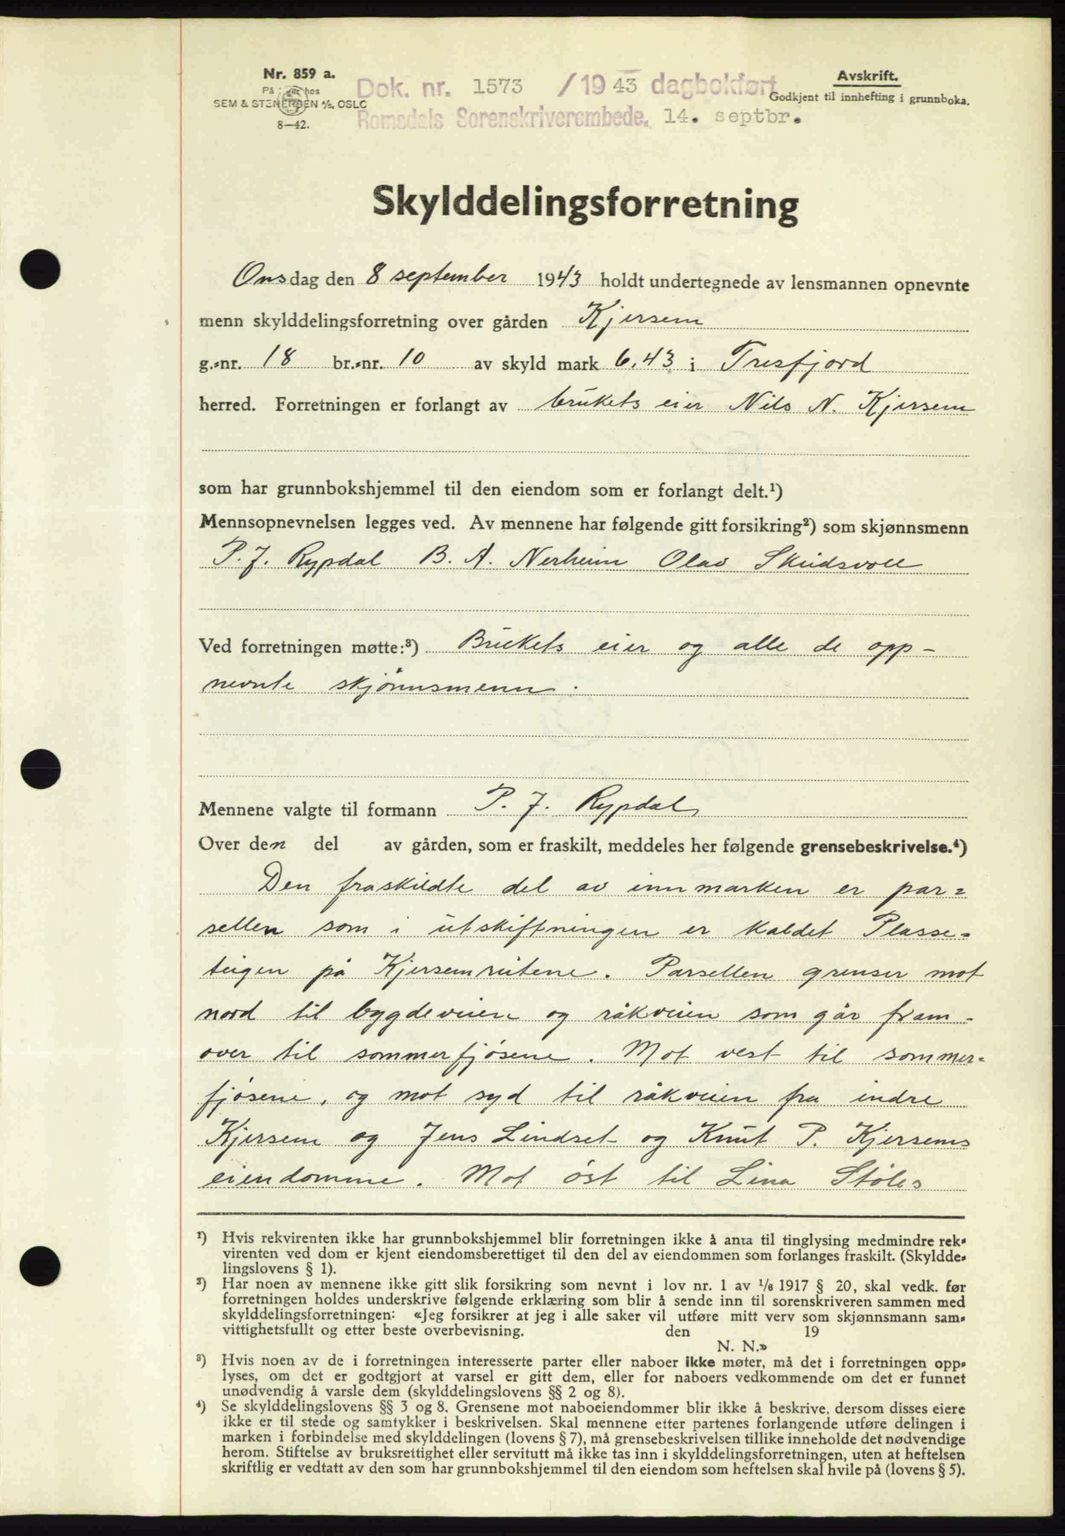 Nr. 859 a.
På hos
SEM & STENERSEN A/S. OSLO
8—42.
Dok. nr. 1573 /1943 dagbokført
Romsdals Sorenskriverembede. 14. septbr.
Avskrift.
Godkjent til innhefting i grunnboka.
Skylddelingsforretning
Onsdag den 8 september 1943 holdt undertegnede av lensmannen opnevnte
menn skylddelingsforretning over gården Kjersem
g.-nr. 18 br.-nr. 10 av skyld mark 6,43 i Tresfjord
herred. Forretningen er forlangt av brukets eier Nils N. Kjersem
som har grunnbokshjemmel til den eiendom som er forlangt delt.¹)
Mennsopnevnelsen legges ved. Av mennene har følgende gitt forsikring²) som skjønnsmenn
P. J. Rypdal B. A. Nerheim Olav Skeidsvoll
Ved forretningen møtte:³) Brukets eier og alle de opp-
nevnte skjønnsmenn.
Mennene valgte til formann P. J. Rypdal
Over den del av gården, som er fraskilt, meddeles her følgende grensebeskrivelse.⁴)
Den fraskildte del av innmarken er par=
sellen som i utskiftningen er kaldet Plasse=
teigen på Kjersemrutene. Parsellen grenser mot
nord til bygdeveien og råkveien som går fram-
over til sommerfjøsene. Mot vest til sommer=
fjøsene, og mot syd til råkveien fra indre
Kjersem og Jens Lindset og Knut P. Kjersems
eiendomme. Mot øst til Lina Støles
¹) Hvis rekvirenten ikke har grunnbokshjemmel blir forretningen ikke å anta til tinglysing medmindre rek-
virenten ved dom er kjent eiendomsberettiget til den del av eiendommen som forlanges fraskilt. (Skyldde-
lingslovens § 1).
²) Har noen av mennene ikke gitt slik forsikring som nevnt i lov nr. 1 av 1/6 1917 § 20, skal vedk. før
forretningen holdes underskrive følgende erklæring som blir å sende inn til sorenskriveren sammen med
skylddelingsforretningen: «Jeg forsikrer at jeg i alle saker vil utføre mitt verv som skjønnsmann sam-
vittighetsfullt og etter beste overbevisning. den 19
N. N.»
³) Hvis noen av de i forretningen interesserte parter eller naboer ikke møter, må det i forretningen opp-
lyses, om det er godtgjort at varsel er gitt dem, eller for naboers vedkommende om det er funnet
unødvendig å varsle dem (skylddelingslovens §§ 2 og 8).
⁴) Se skylddelingslovens §§ 3 og 8. Grensene mot naboeiendommer blir ikke å beskrive, dersom disses eiere
ikke er til stede og samtykker i beskrivelsen. Skal mennene etter partenes forlangende utføre delingen i
marken i forbindelse med skylddelingen (lovens § 7), må grensebeskrivelsen tillike inneholde det nødvendige
herom. Stiftelse av bruksrettighet eller servitutt må ikke tas inn i skylddelingsforretningen, uten at heftelsen
skriftlig er vedtatt av den som har grunnbokshjemmel til den eiendom som heftelsen skal hvile på (lovens § 5).